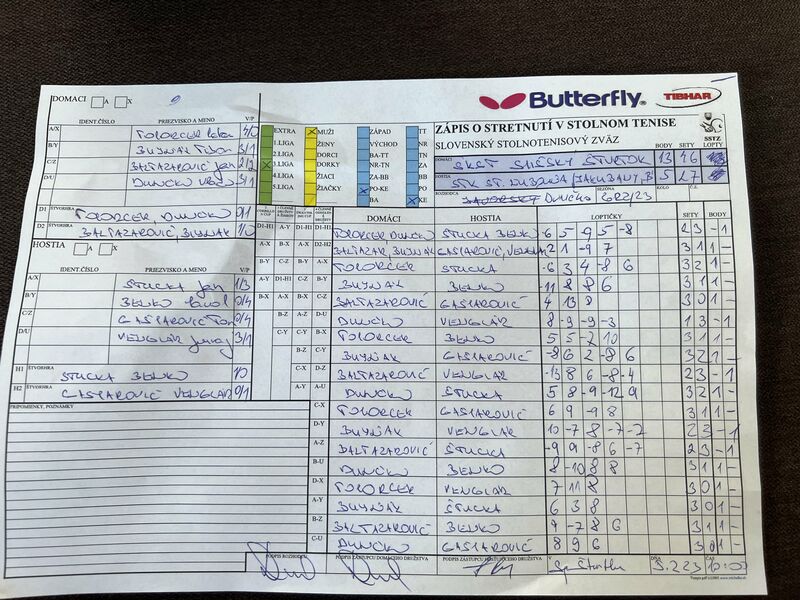 DOMACI A X
Butterfly
TIBHAR
IDENT.ČÍSLO PRIEZVISKO A MENO V/P
A/X TOPORCER 4/0
B/Y BUJŇÁK 3/1
C/Z BALTAZAROVIČ JÁN 2/2
D/U DUNČKO 3/1
D1 ŠTVORHRA TOPORCER, DUNČKO 0/1
D2 ŠTVORHRA BALTAZAROVIČ, BUJŇÁK 1/0
HOSTIA A X
IDENT.ČÍSLO PRIEZVISKO A MENO V/P
A/X ŠTUCKA JÁN 1/3
B/Y BENKO 0/4
C/Z GAŠPAROVIČ 0/4
D/U VENGLÁR JURAJ 3/1
H1 ŠTVORHRA ŠTUCKA BENKO 1/0
H2 ŠTVORHRA GAŠPAROVIČ VENGLÁR 0/1
PRIPOMIENKY, POZNÁMKY
EXTRA MUŽI ZÁPAD TT
1.LIGA ŽENY VÝCHOD NR
2.LIGA DORCI BA-TT TN
3.LIGA DORKY NR-TN ZA
4.LIGA ŽIACI ZA-BB BB
5.LIGA ŽIAČKY PO-KE PO
BA KE
ZÁPIS O STRETNUTÍ V STOLNOM TENISE
SLOVENSKÝ STOLNOTENISOVÝ ZVÄZ
SSTZ
BODY SETY LOPTY
DOMÁCI SKST SPIŠSKÝ ŠTVRTOK 13 46
HOSTIA STK ST. ĽUBOVŇA/JAKUBANY B 5 27
ROZHODCA DUNČKO SEZÓNA 2022/23 KOLO Č.Z.
DOMÁCI HOSTIA LOPTIČKY SETY BODY
D1-H1 TOPORCER, DUNČKO ŠTUCKA BENKO -6 5 -9 5 -8 2 3 - 1
D2-H2 BALTAZAR., BUJŇÁK GAŠPAROVIČ, VENGLÁR 2 1 -9 7 3 1 1 -
A-X TOPORCER ŠTUCKA -6 3 4 -8 6 3 2 1 -
B-Y BUJŇÁK BENKO -11 8 8 6 3 1 1 -
C-Z BALTAZAROVIČ GAŠPAROVIČ 4 13 8 3 0 1 -
D-U DUNČKO VENGLÁR 8 -9 -9 -3 1 3 - 1
A-Y TOPORCER BENKO 5 5 -7 10 3 1 1 -
B-Z BUJŇÁK GAŠPAROVIČ -8 6 2 -8 6 3 2 1 -
C-U BALTAZAROVIČ VENGLÁR -13 8 6 -8 -4 2 3 - 1
D-X DUNČKO ŠTUCKA 5 8 -9 -12 9 3 2 1 -
C-X TOPORCER GAŠPAROVIČ 6 9 -9 8 3 1 1 -
D-Y BUJŇÁK VENGLÁR 10 -7 8 -7 -2 2 3 - 1
A-Z BALTAZAROVIČ ŠTUCKA -9 9 -8 6 -7 2 3 - 1
B-U DUNČKO BENKO 8 -10 8 8 3 1 1 -
D-X TOPORCER VENGLÁR 7 11 8 3 0 1 -
A-Y BUJŇÁK ŠTUCKA 6 3 8 3 0 1 -
B-Z BALTAZAROVIČ BENKO 9 -7 8 6 3 1 1 -
C-U DUNČKO GAŠPAROVIČ 8 9 6 3 0 1 -
PODPIS ROZHODCU PODPIS ZÁSTUPCU DOMÁCEHO DRUŽSTVA PODPIS ZÁSTUPCU HOSŤUJÚCEHO DRUŽSTVA V Sp. Štvrtku DŇA 5.2.23 ČAS 10:00